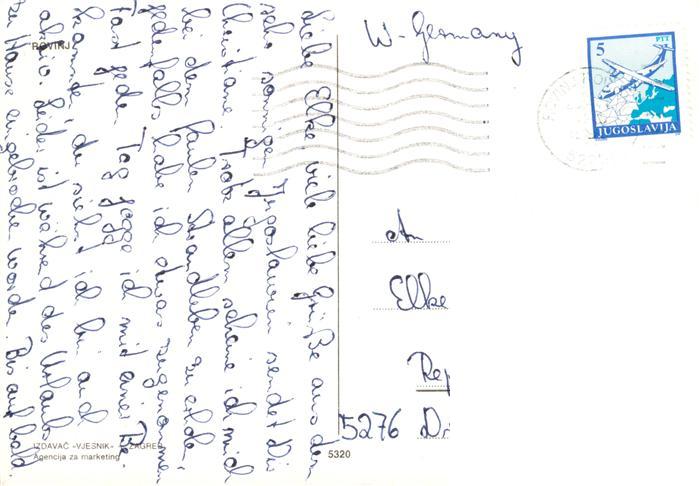 Liebe Elke, viele liebe Grüße aus dem
sehr sonnigen Yugoslavien sendet Dir
Christiane. Trotz allem scheine ich mich
bei dem faulen Strandleben zu
jedenfalls habe ich etwas zugenommen
Fast jeden Tag jogge ich mit einer Be-
kannte, du siehst ich bin auch
aktiv. Leider ist während des Urlaubs
zu Hause eingebrochen worden. Bis auf bald.
ROVINJ
IZDAVAČ »VJESNIK« ZAGREB
Agencija za marketing
5320
W-Germany
5
PTT
JUGOSLAVIJA
An
Elke
Rep
5276 Dr